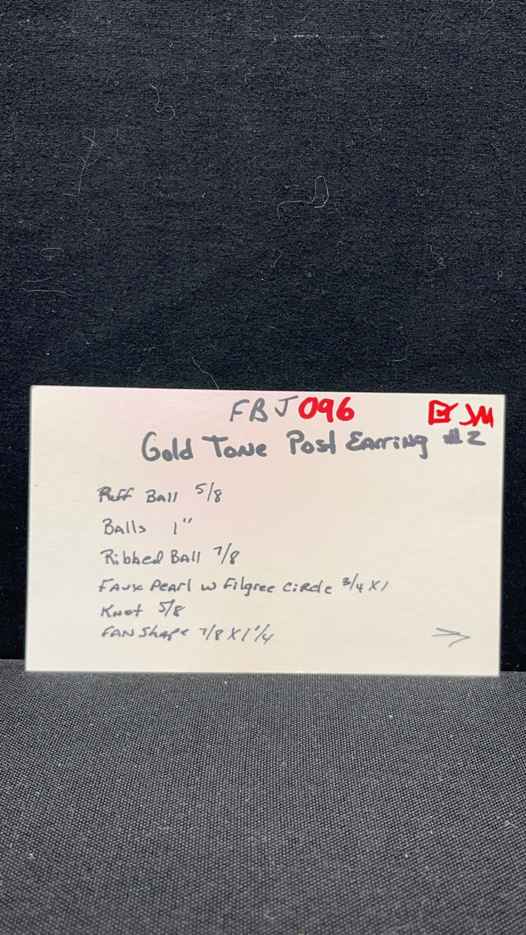 FBJ 096 JM
Gold Tone Post Earring #2
Puff Ball 5/8
Balls 1"
Ribbed Ball 7/8
Faux Pearl w Filgree Circle 3/4 X 1
Knot 5/8
Fan Shape 7/8 X 1 1/4